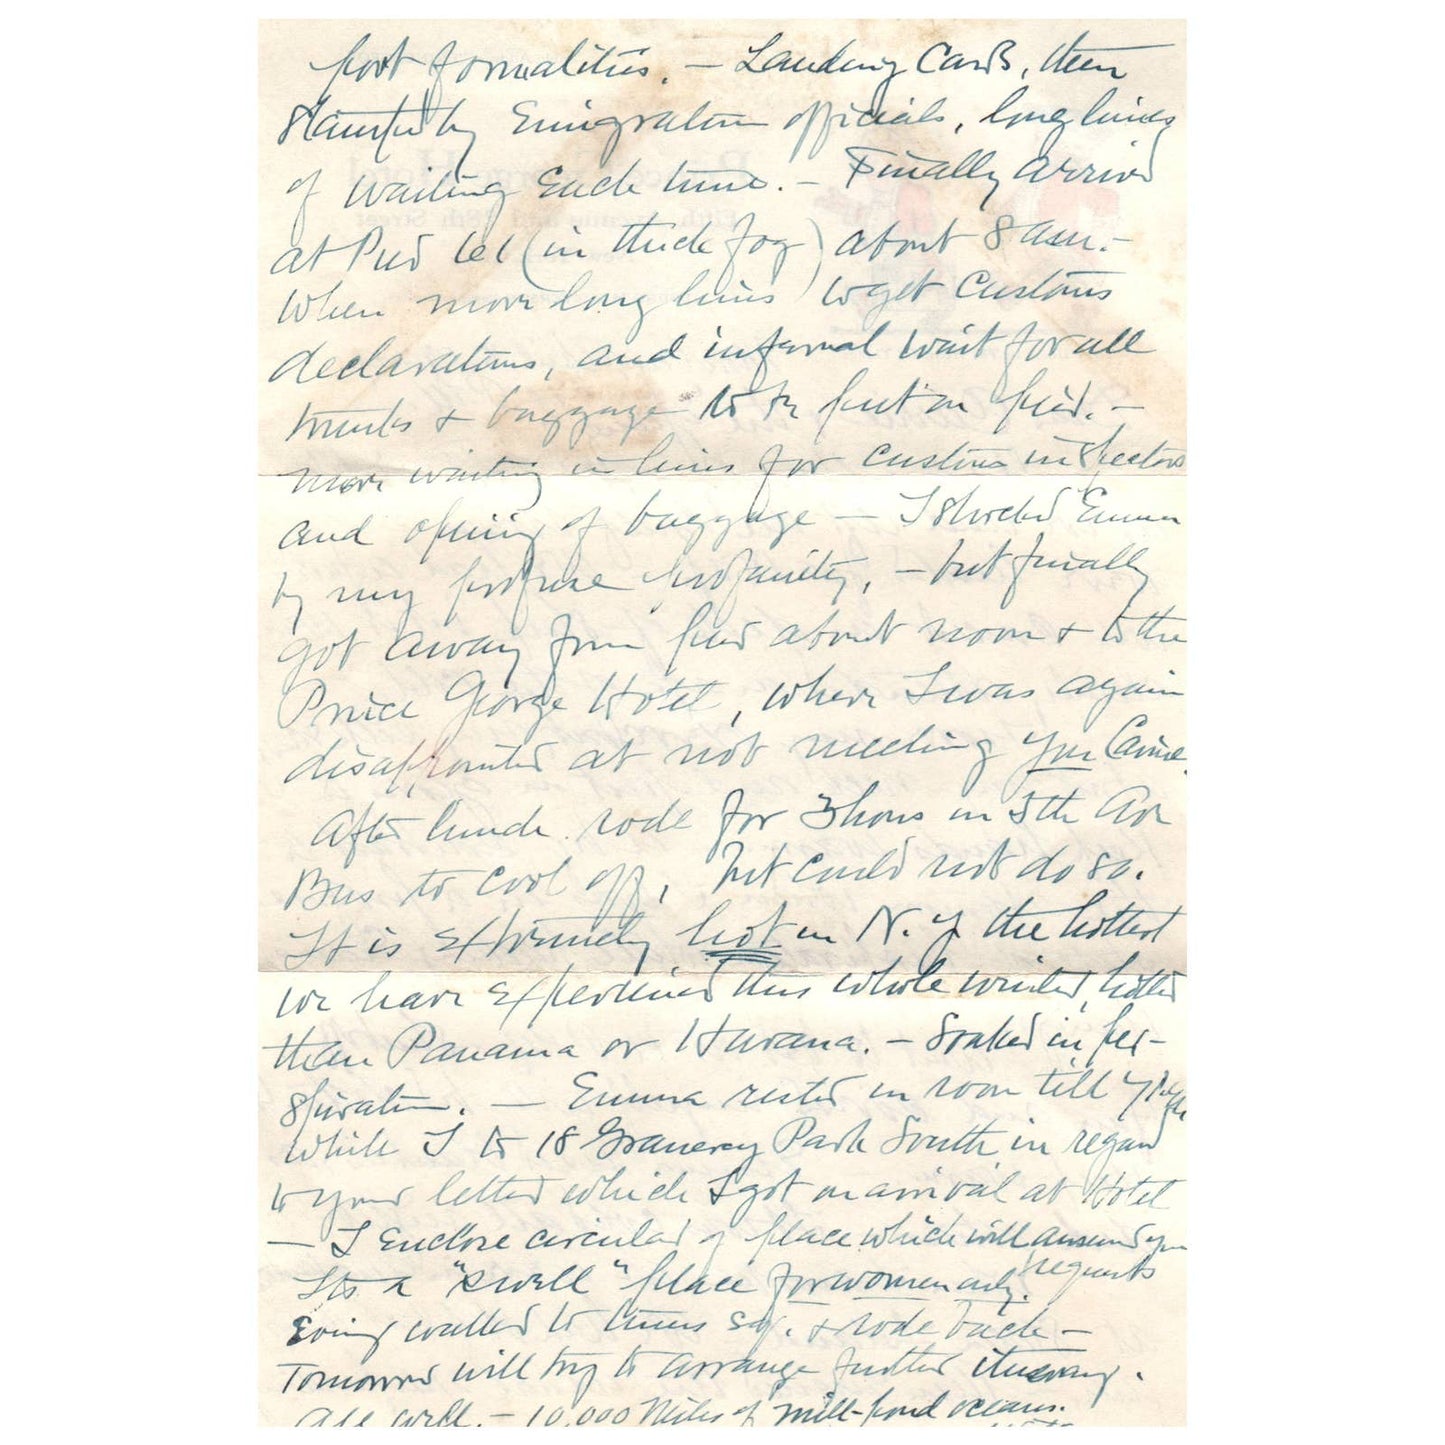 port formalities. — Landing Cards, then
stamped by Emigration officials, long lines
of waiting each time. — Finally arrived
at Pier 61 (in thick fog) about 8 am. —
When more long lines to get Customs
declarations, and infernal wait for all
trunks & baggage to be put on pier. —
more waiting in lines for customs inspectors
and opening of baggage — I shocked Emma
by my profuse profanity, — but finally
got away from pier about noon & to the
Prince George Hotel, where I was again
disappointed at not meeting you Carrie.
After lunch rode for 3 hours in 5th Ave
Bus to cool off, but could not do so.
It is extremely hot in N.Y. the hottest
we have experienced this whole winter, hotter
than Panama or Havana. — Soaked in per-
spiration. — Emma rested in room till
while I to 18 Gramercy Park South in regard
to your letter which I got on arrival at Hotel
— I enclose circular of place which will answer your
requests
Its a "swell" place for women only.
Evening walked to times sq. & rode back —
Tomorrow will try to arrange further itinerary.
All well. — 10,000 Miles of mill-pond oceans.